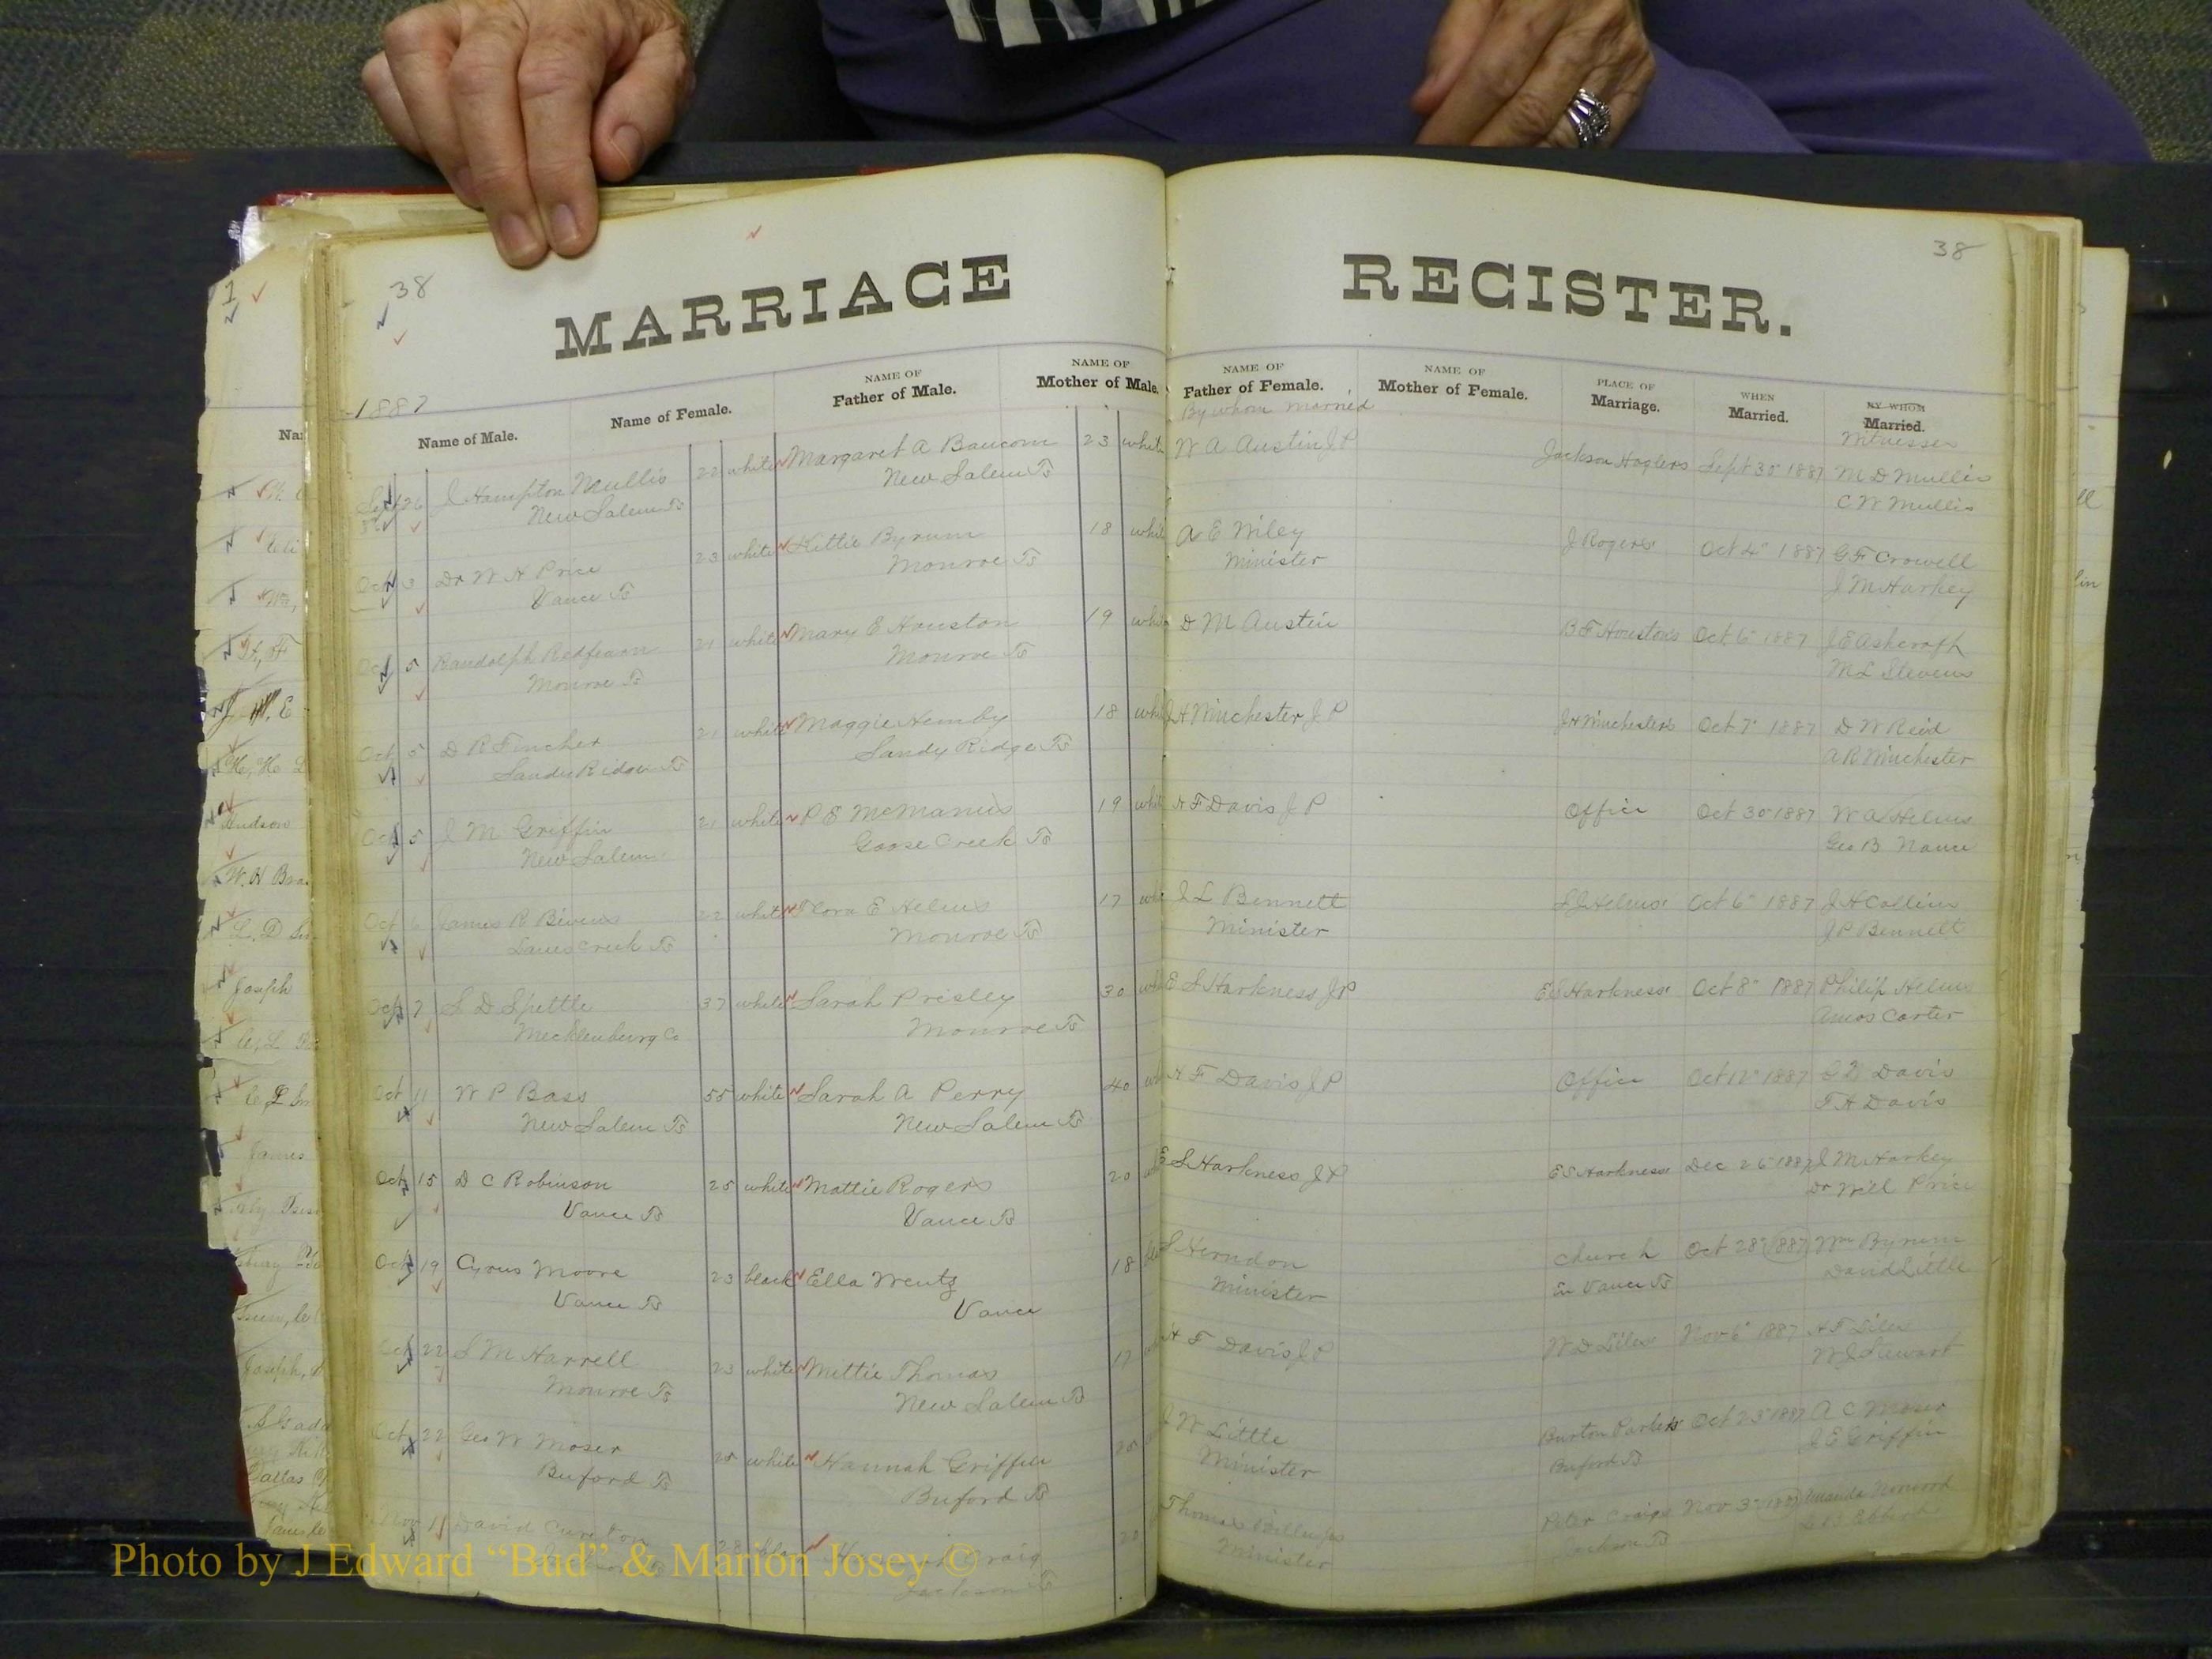 38
MARRIAGE
1887
Name of Male.
Name of Female.
NAME OF
Father of Male.
NAME OF
Mother of Male.
Sept 26 J Hampton Mullis 22 white Margaret A Baucom 23 white
New Salem Ts New Salem Ts
Oct 3 Dr W H Price 23 white Kittie Byrum 18 white
Vance Ts Monroe Ts
Oct 5 Randolph Redfearn 21 white Mary E Houston 19 white
Monroe Ts Monroe Ts
Oct 5 D R Fincher 21 white Maggie Hemby 18 white
Sandy Ridge Ts Sandy Ridge Ts
Oct 5 J M Griffin 21 white P E McManus 19 white
New Salem Goose Creek Ts
Oct 6 James R Bivens 22 white Flora E Helms 17 white
Lanes Creek Ts Monroe Ts
Oct 7 S D Spittle 37 white Sarah Prisley 30
Mecklenburg Co Monroe Ts
Oct 11 W P Bass 55 white Sarah A Perry 40
New Salem Ts New Salem Ts
Oct 15 D C Robinson 25 white Mattie Rogers 20
Vance Ts Vance Ts
Oct 19 Cyrus Moore 23 black Ella Wentz 18
Vance Ts Vance
Oct 22 S M Harrell 23 white Mittie Thomas 17
Monroe Ts New Salem Ts
Oct 22 Geo W Moser 25 white Hannah Griffin 20
Buford Ts Buford Ts
Nov 1 David Cureton 28 Craig 20
Jackson Ts
38
REGISTER.
NAME OF
Father of Female.
By whom married
NAME OF
Mother of Female.
PLACE OF
Marriage.
WHEN
Married.
BY WHOM
Married.
Witnesses
W A Austin J P Jackson Haglers Sept 30 1887 M D Mullis
C W Mullis
A E Wiley J Rogers Oct 4 1887 G F Crowell
Minister J M Harkey
D M Austin B F Houstons Oct 6 1887 J E Ashcraft
M L Stevens
J H Winchester J P J H Winchesters Oct 7 1887 D W Reid
A R Winchester
H F Davis J P Office Oct 30 1887 W A Helms
Geo B Nance
J L Bennett Helms Oct 6 1887 J H Collins
Minister J P Bennett
E S Harkness J P E S Harkness Oct 8 1887 Philip Helms
Amos Carter
H F Davis J P Office Oct 12 1887 Davis
F H Davis
E S Harkness J P E S Harkness Dec 26 1887 J M Harkey
Dr Will Price
S Herndon Church Oct 28 1887 Wm Byrum
Minister in Vance Ts David Little
H F Davis J P W D Liles Nov 6 1887 H F Liles
W J Stewart
J W Little Burton Parkers Oct 23 1887 A C Moser
Minister Buford Ts J E Griffin
Thomas Peter Craigs Nov 3 1887 Norwood
Minister Jackson Ts
1
Na
J H. E
Hudson
W. H Bra
L. D
Joseph
James
Joseph,
Dallas
Photo by J Edward “Bud” & Marion Josey ©